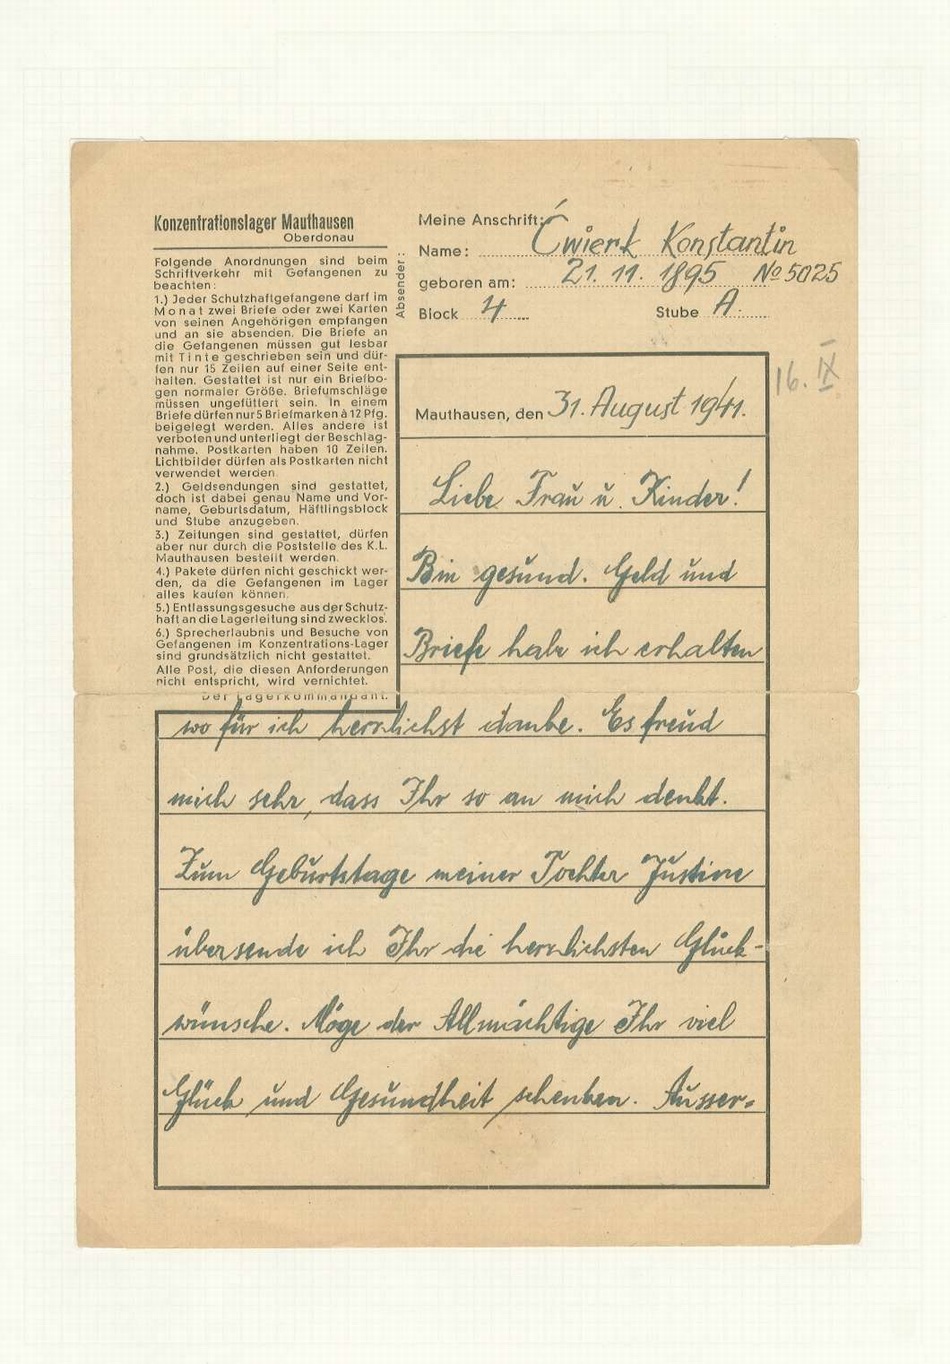 Konzentrationslager Mauthausen
Oberdonau
Folgende Anordnungen sind beim
Schriftverkehr mit Gefangenen zu
beachten:
1.) Jeder Schutzhaftgefangene darf im
Monat zwei Briefe oder zwei Karten
von seinen Angehörigen empfangen
und an sie absenden. Die Briefe an
die Gefangenen müssen gut lesbar
mit Tinte geschrieben sein und dür-
fen nur 15 Zeilen auf einer Seite ent-
halten. Gestattet ist nur ein Briefbo-
gen normaler Größe. Briefumschläge
müssen ungefüttert sein. In einem
Briefe dürfen nur 5 Briefmarken à 12 Pfg.
beigelegt werden. Alles andere ist
verboten und unterliegt der Beschlag-
nahme. Postkarten haben 10 Zeilen.
Lichtbilder dürfen als Postkarten nicht
verwendet werden.
2.) Geldsendungen sind gestattet,
doch ist dabei genau Name und Vor-
name, Geburtsdatum, Häftlingsblock
und Stube anzugeben.
3.) Zeitungen sind gestattet, dürfen
aber nur durch die Poststelle des K.L.
Mauthausen bestellt werden.
4.) Pakete dürfen nicht geschickt wer-
den, da die Gefangenen im Lager
alles kaufen können.
5.) Entlassungsgesuche aus der Schutz-
haft an die Lagerleitung sind zwecklos.
6.) Sprecherlaubnis und Besuche von
Gefangenen im Konzentrations-Lager
sind grundsätzlich nicht gestattet.
Alle Post, die diesen Anforderungen
nicht entspricht, wird vernichtet.
Der Lagerkommandant.
Absender:
Meine Anschrift:
Name: Ćwierk Konstantin
geboren am: 21. 11. 1895 No 5025
Block 4 Stube A.
16. IX
Mauthausen, den 31. August 1941.
Liebe Frau u. Kinder!
Bin gesund. Geld und
Briefe habe ich erhalten
wo für ich herrlichst danke. Es freud
mich sehr, dass Ihr so an mich denkt.
Zum Geburtstage meiner Tochter Justine
übersende ich Ihr die herrlichsten Glück-
wünsche. Möge der Allmächtige Ihr viel
Glück und Gesundheit schenken. Ausser-